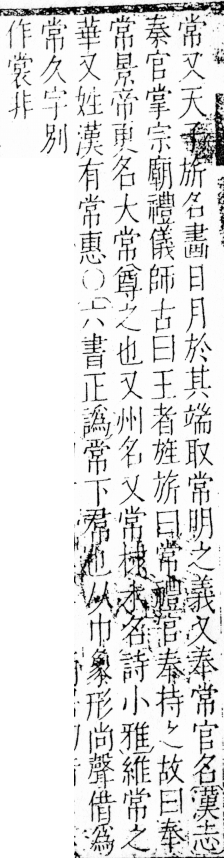 常又天子旂名畵日月於其端取常明之義又奉常官名漢志
秦官掌宗廟禮儀師古曰王者旌旂曰常禮官奉持之故曰奉
常景帝更名大常尊之也又州名又常棣木名詩小雅維常之
華又姓漢有常惠〇六書正譌常下帬也从巾象形尚聲借爲
常久字別
作裳非